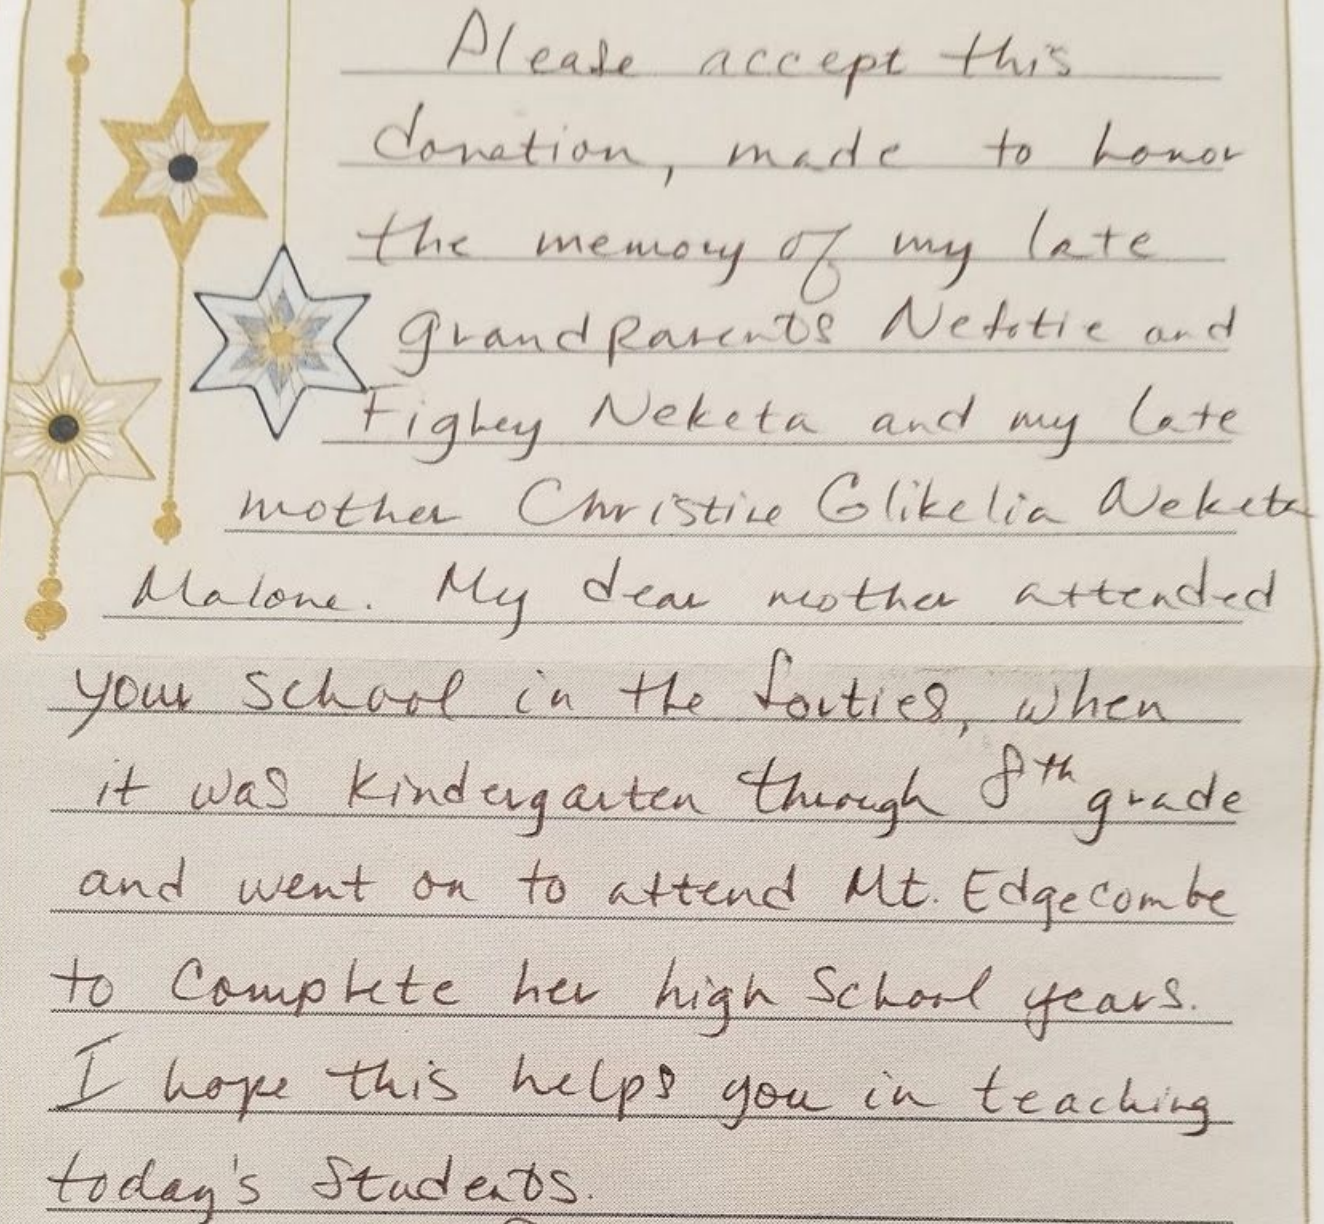 Please accept this
donation, made to honor
the memory of my late
grandparents Nefotie and
Fighey Neketa and my late
mother Christine Glikelia Neketa
Malone. My dear mother attended
your school in the forties, when
it was kindergarten through 8th grade
and went on to attend Mt. Edgecombe
to complete her high school years.
I hope this helps you in teaching
today's students.